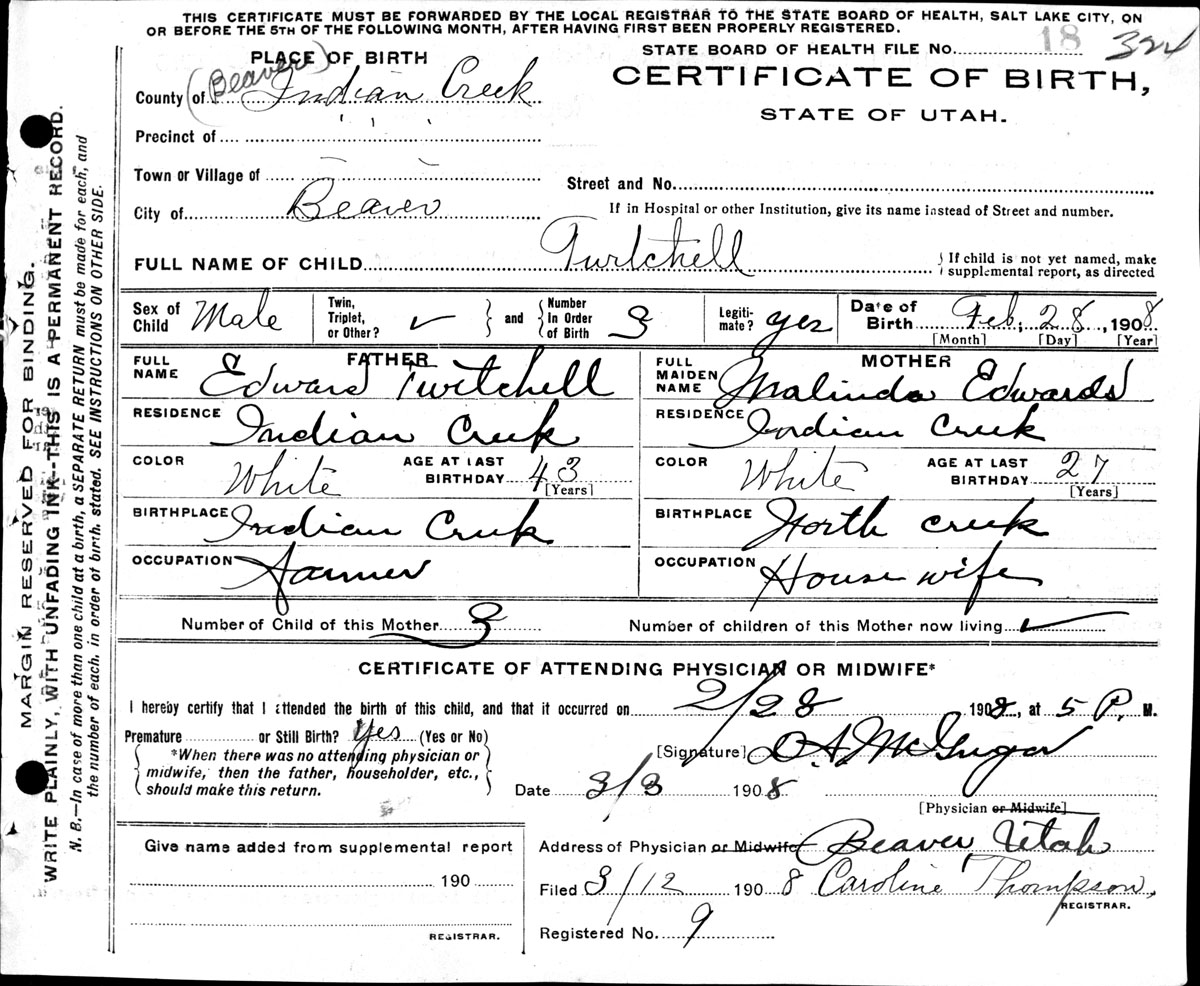 THIS CERTIFICATE MUST BE FORWARDED BY THE LOCAL REGISTRAR TO THE STATE BOARD OF HEALTH, SALT LAKE CITY, ON
OR BEFORE THE 5TH OF THE FOLLOWING MONTH, AFTER HAVING FIRST BEEN PROPERLY REGISTERED.
PLACE OF BIRTH
STATE BOARD OF HEALTH FILE No. 18 324
CERTIFICATE OF BIRTH,
STATE OF UTAH.
County of (Beaver) Indian Creek
Precinct of
Town or Village of
Street and No.
City of Beaver
If in Hospital or other Institution, give its name instead of Street and number.
FULL NAME OF CHILD Twitchell
If child is not yet named, make
supplemental report, as directed
Sex of Child Male
Twin, Triplet, or Other? ✓ and Number In Order of Birth 3
Legitimate? yes
Date of Birth Feb. 28, 1908
[Month] [Day] [Year]
FATHER
FULL NAME Edward Twitchell
RESIDENCE Indian Creek
COLOR White AGE AT LAST BIRTHDAY 43
[Years]
BIRTHPLACE Indian Creek
OCCUPATION Farmer
MOTHER
FULL MAIDEN NAME Malinda Edwards
RESIDENCE Indian Creek
COLOR White AGE AT LAST BIRTHDAY 27
[Years]
BIRTHPLACE North creek
OCCUPATION House wife
Number of Child of this Mother 3 Number of children of this Mother now living ✓
CERTIFICATE OF ATTENDING PHYSICIAN OR MIDWIFE*
I hereby certify that I attended the birth of this child, and that it occurred on 2/28 1908, at 5 P. M.
Premature or Still Birth? Yes (Yes or No)
*When there was no attending physician or
midwife, then the father, householder, etc.,
should make this return.
[Signature]
Date 3/3 1908
[Physician or Midwife]
Give name added from supplemental report
190
REGISTRAR.
Address of Physician or Midwife Beaver Utah
Filed 3/12 1908 Caroline Thompson,
REGISTRAR.
Registered No. 9
MARGIN RESERVED FOR BINDING.
WRITE PLAINLY, WITH UNFADING INK--THIS IS A PERMANENT RECORD.
N. B.—In case of more than one child at a birth, a SEPARATE RETURN must be made for each, and
the number of each, in order of birth, stated. SEE INSTRUCTIONS ON OTHER SIDE.